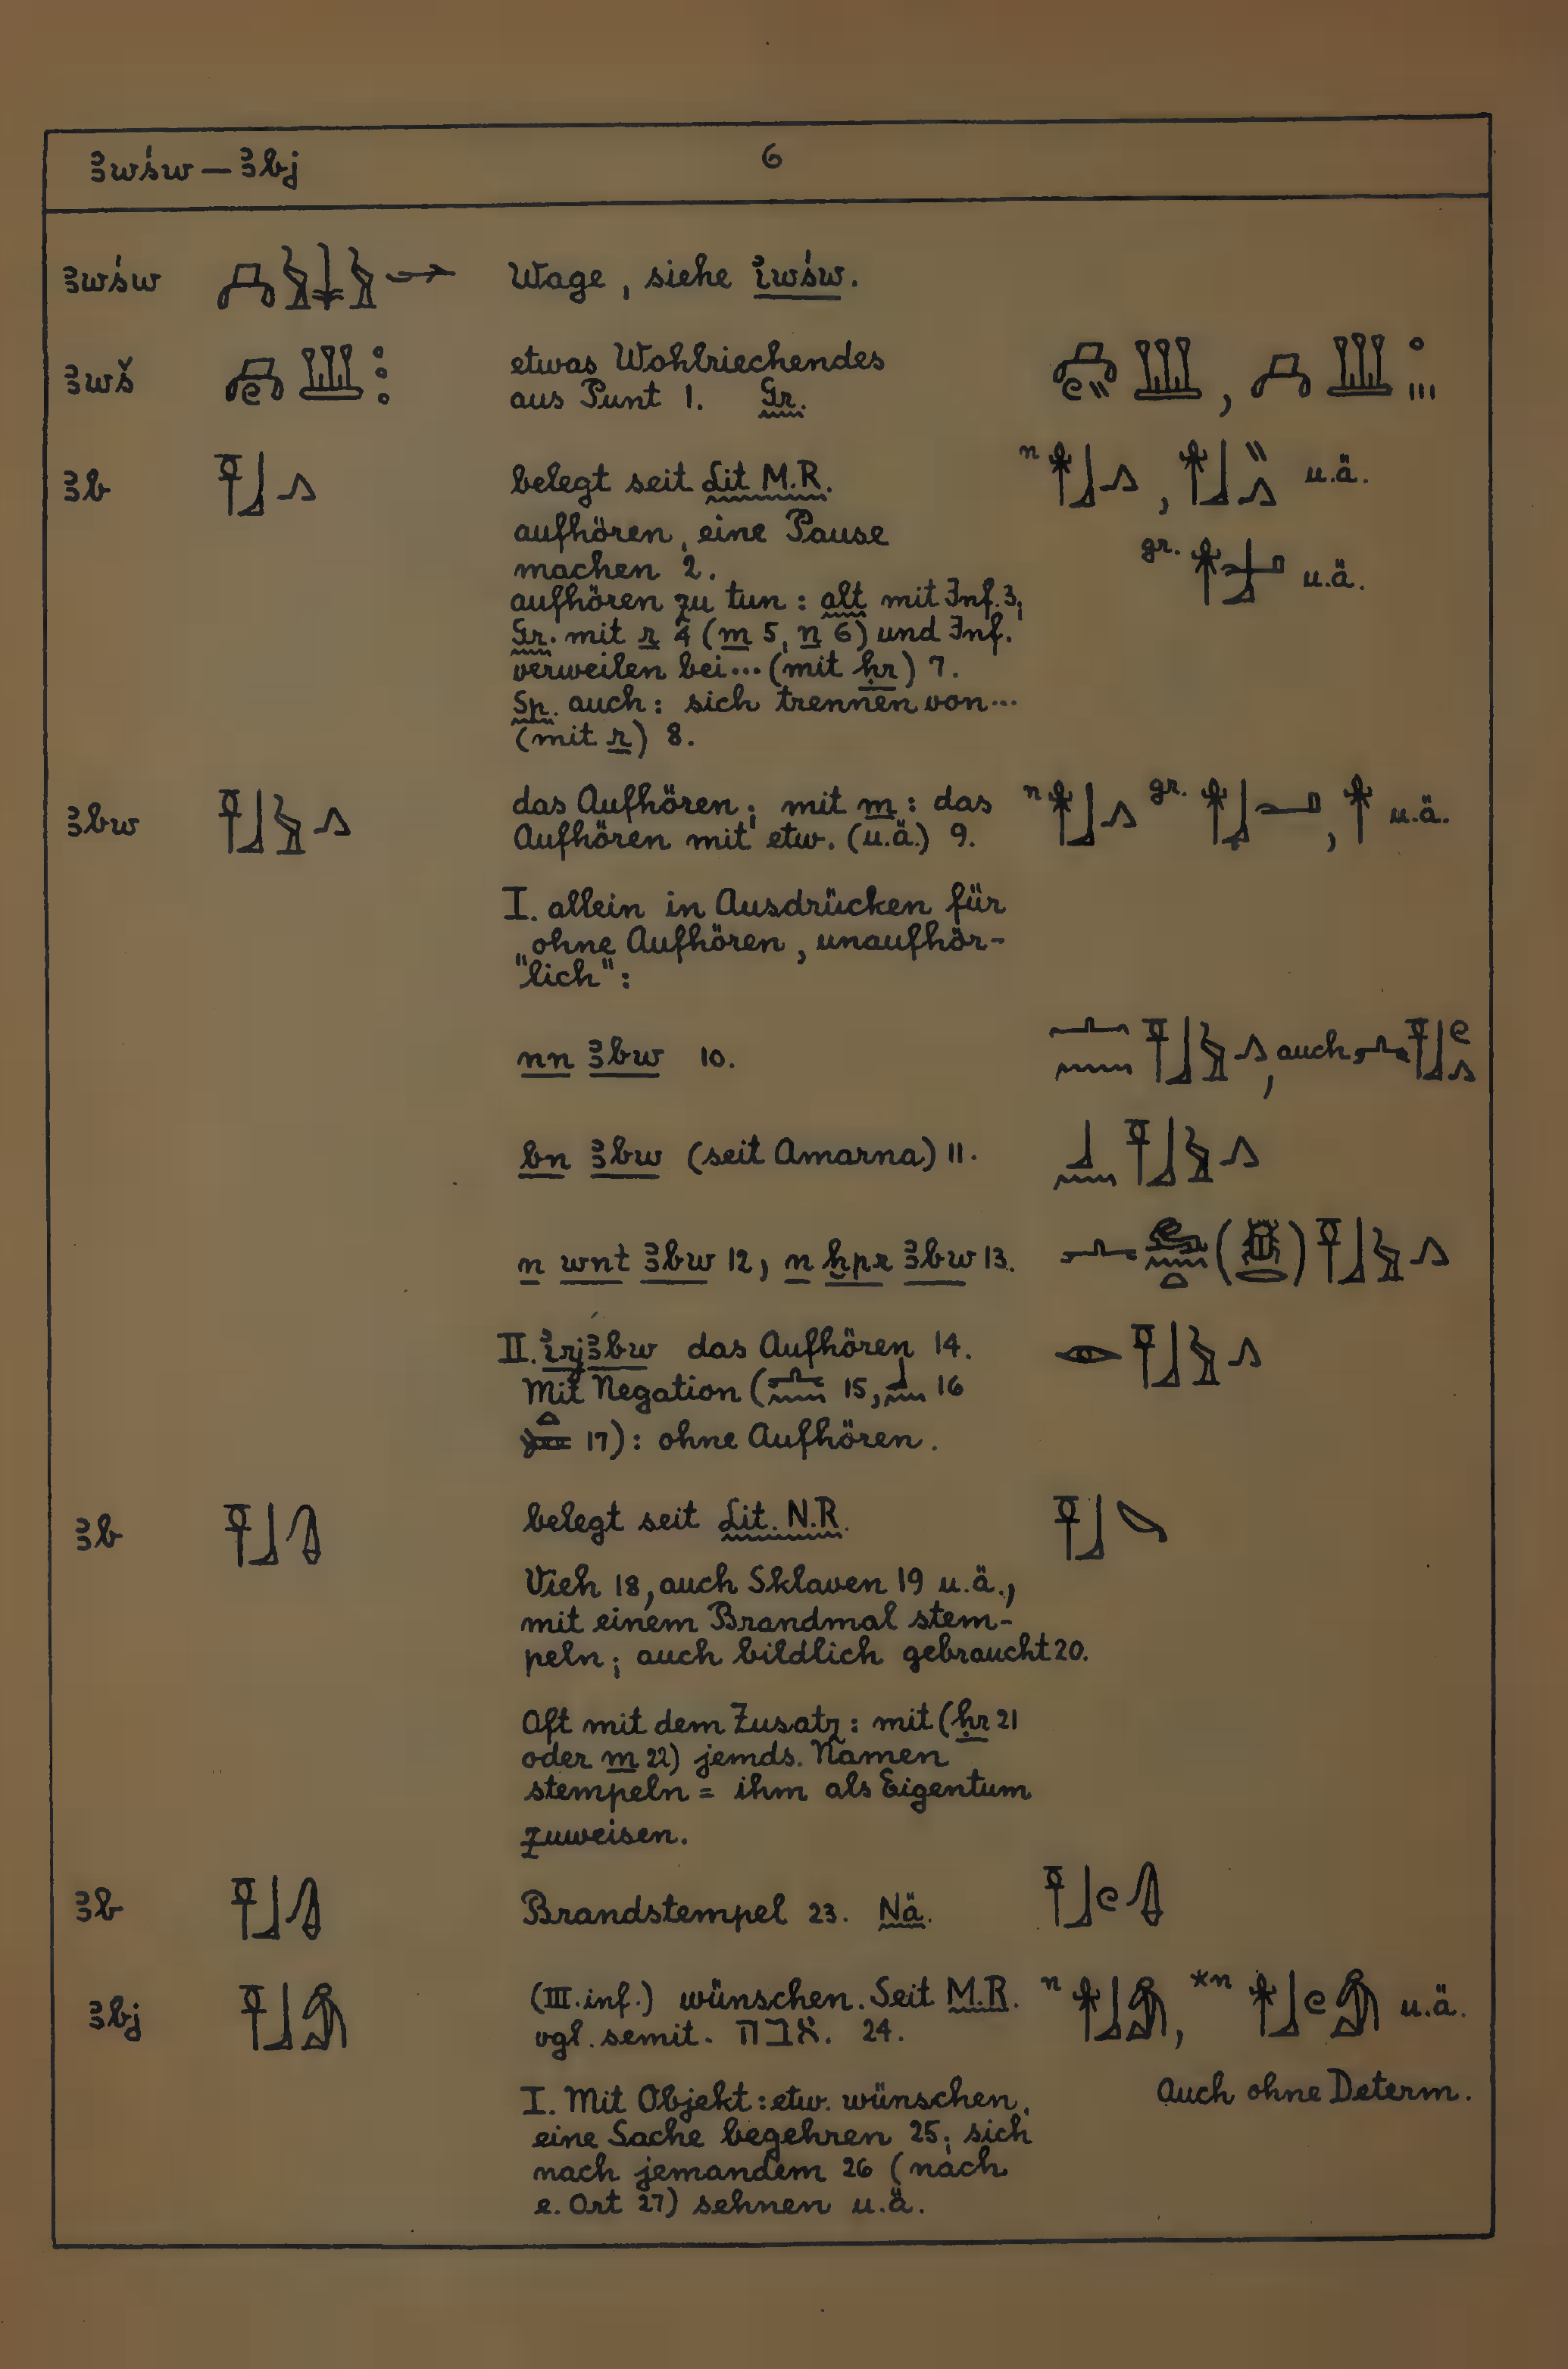 ꜣwśw — ꜣbj 6
ꜣwśw Wage, siehe i҆wśw.
ꜣwš etwas Wohlriechendes
aus Punt 1. Gr.
ꜣb belegt seit Lit M.R. n , u.ä.
aufhören, eine Pause
machen 2. gr. u.ä.
aufhören zu tun: alt mit Inf. 3;
Gr. mit r 4 (m 5, n 6) und Inf.
verweilen bei... (mit ḥr) 7.
Sp. auch: sich trennen von...
(mit r) 8.
ꜣbw das Aufhören; mit m: das n gr. , u.ä.
Aufhören mit etw. (u.ä.) 9.
I. allein in Ausdrücken für
"ohne Aufhören, unaufhör-
"lich":
nn ꜣbw 10. , auch
bn ꜣbw (seit Amarna) 11.
n wnt ꜣbw 12, n ḫpr ꜣbw 13.
II. i҆rj ꜣbw das Aufhören 14.
Mit Negation ( 15, 16
17): ohne Aufhören.
ꜣb belegt seit Lit. N.R.
Vieh 18, auch Sklaven 19 u.ä.,
mit einem Brandmal stem-
peln; auch bildlich gebraucht 20.
Oft mit dem Zusatz: mit (ḥr 21
oder m 22) jemds. Namen
stempeln = ihm als Eigentum
zuweisen.
ꜣb Brandstempel 23. Nä.
ꜣbj (III. inf.) wünschen. Seit M.R. n , *n u.ä.
vgl. semit. אבה. 24.
I. Mit Objekt: etw. wünschen, auch ohne Determ.
eine Sache begehren 25; sich
nach jemandem 26 (nach
e. Ort 27) sehnen u.ä.